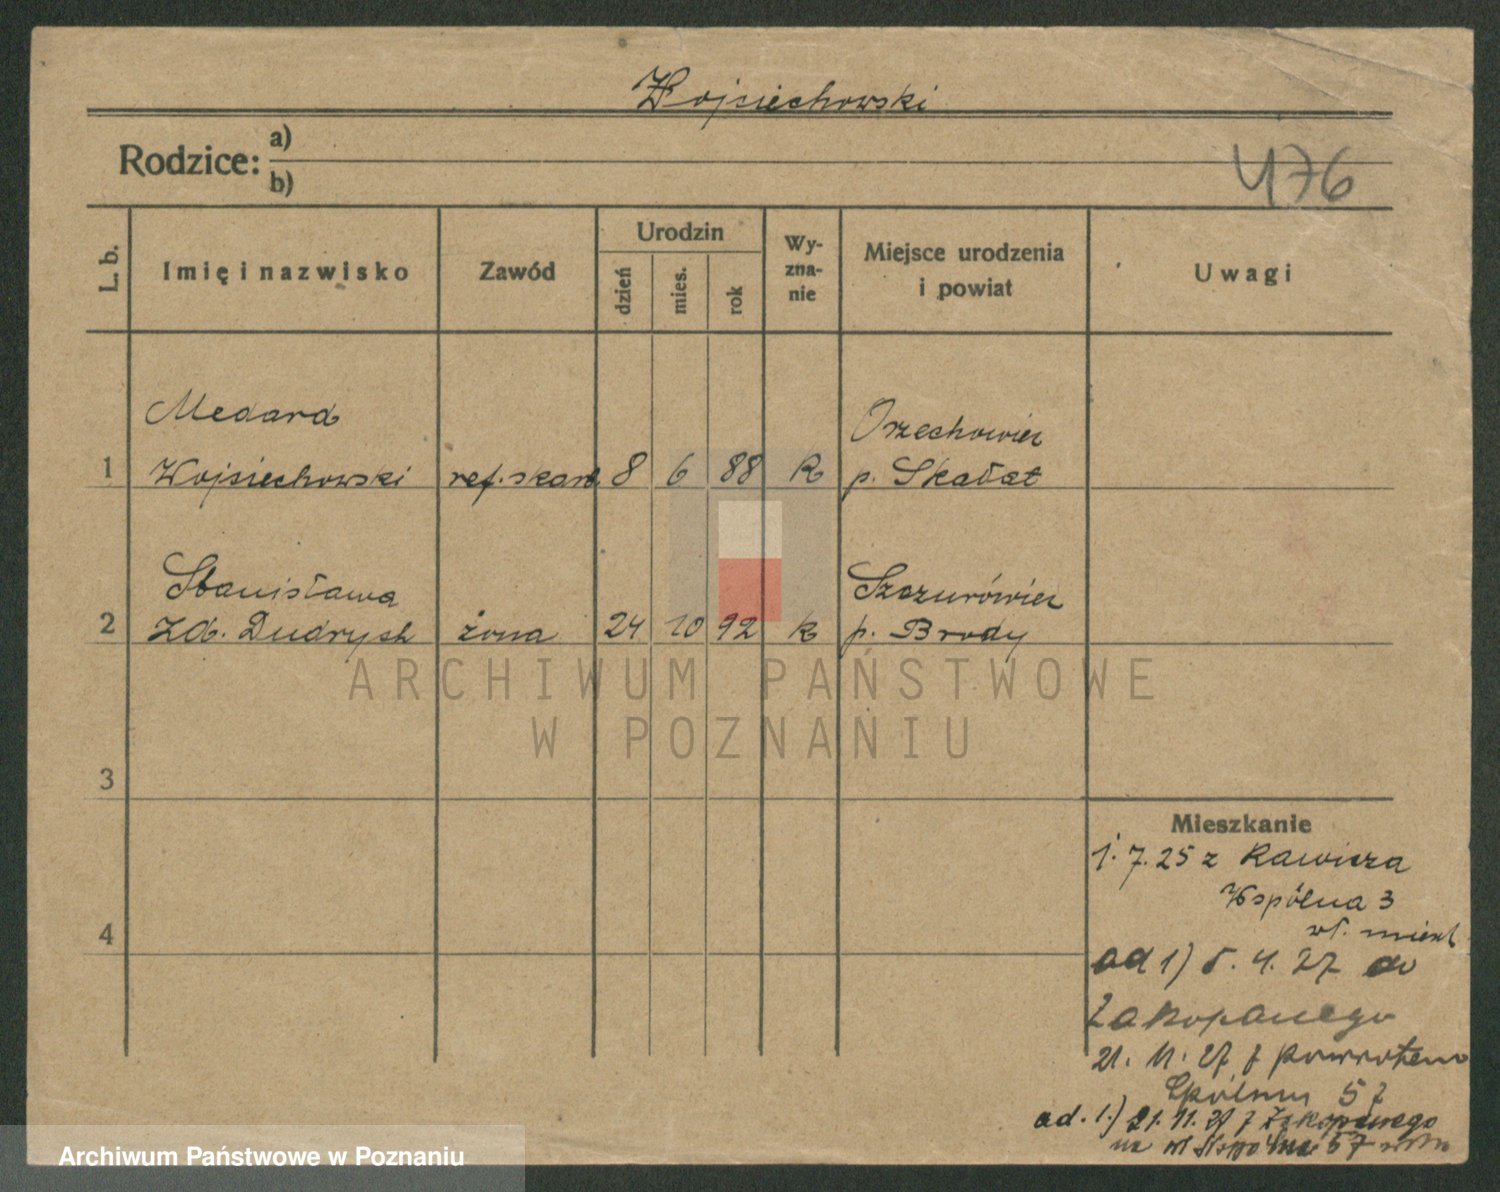 Wojciechowski
Rodzice: a)
b)
476
L. b.
Imię i nazwisko
Zawód
Urodzin
dzień
mies.
rok
Wy-
zna-
nie
Miejsce urodzenia
i powiat
Uwagi
Medard
Orzechowiec
1 Wojciechowski ref. skarb. 8 6 88 k p. Skałat
Stanisława
Szczurówiec
2 zd. Dudrysh żona 24 10 92 k p. Brody
ARCHIWUM PAŃSTWOWE
W POZNANIU
3
4
Mieszkanie
1. 7. 25 z Rawicza
Wspólna 3
wł. mieszk
ad 1) 5. 4. 27 do
Zakopanego
21. 11. 27 z powrotem
57
ad. 1.) 21. 11. 27 z Zakopanego
na Wspólna 57
Archiwum Państwowe w Poznaniu